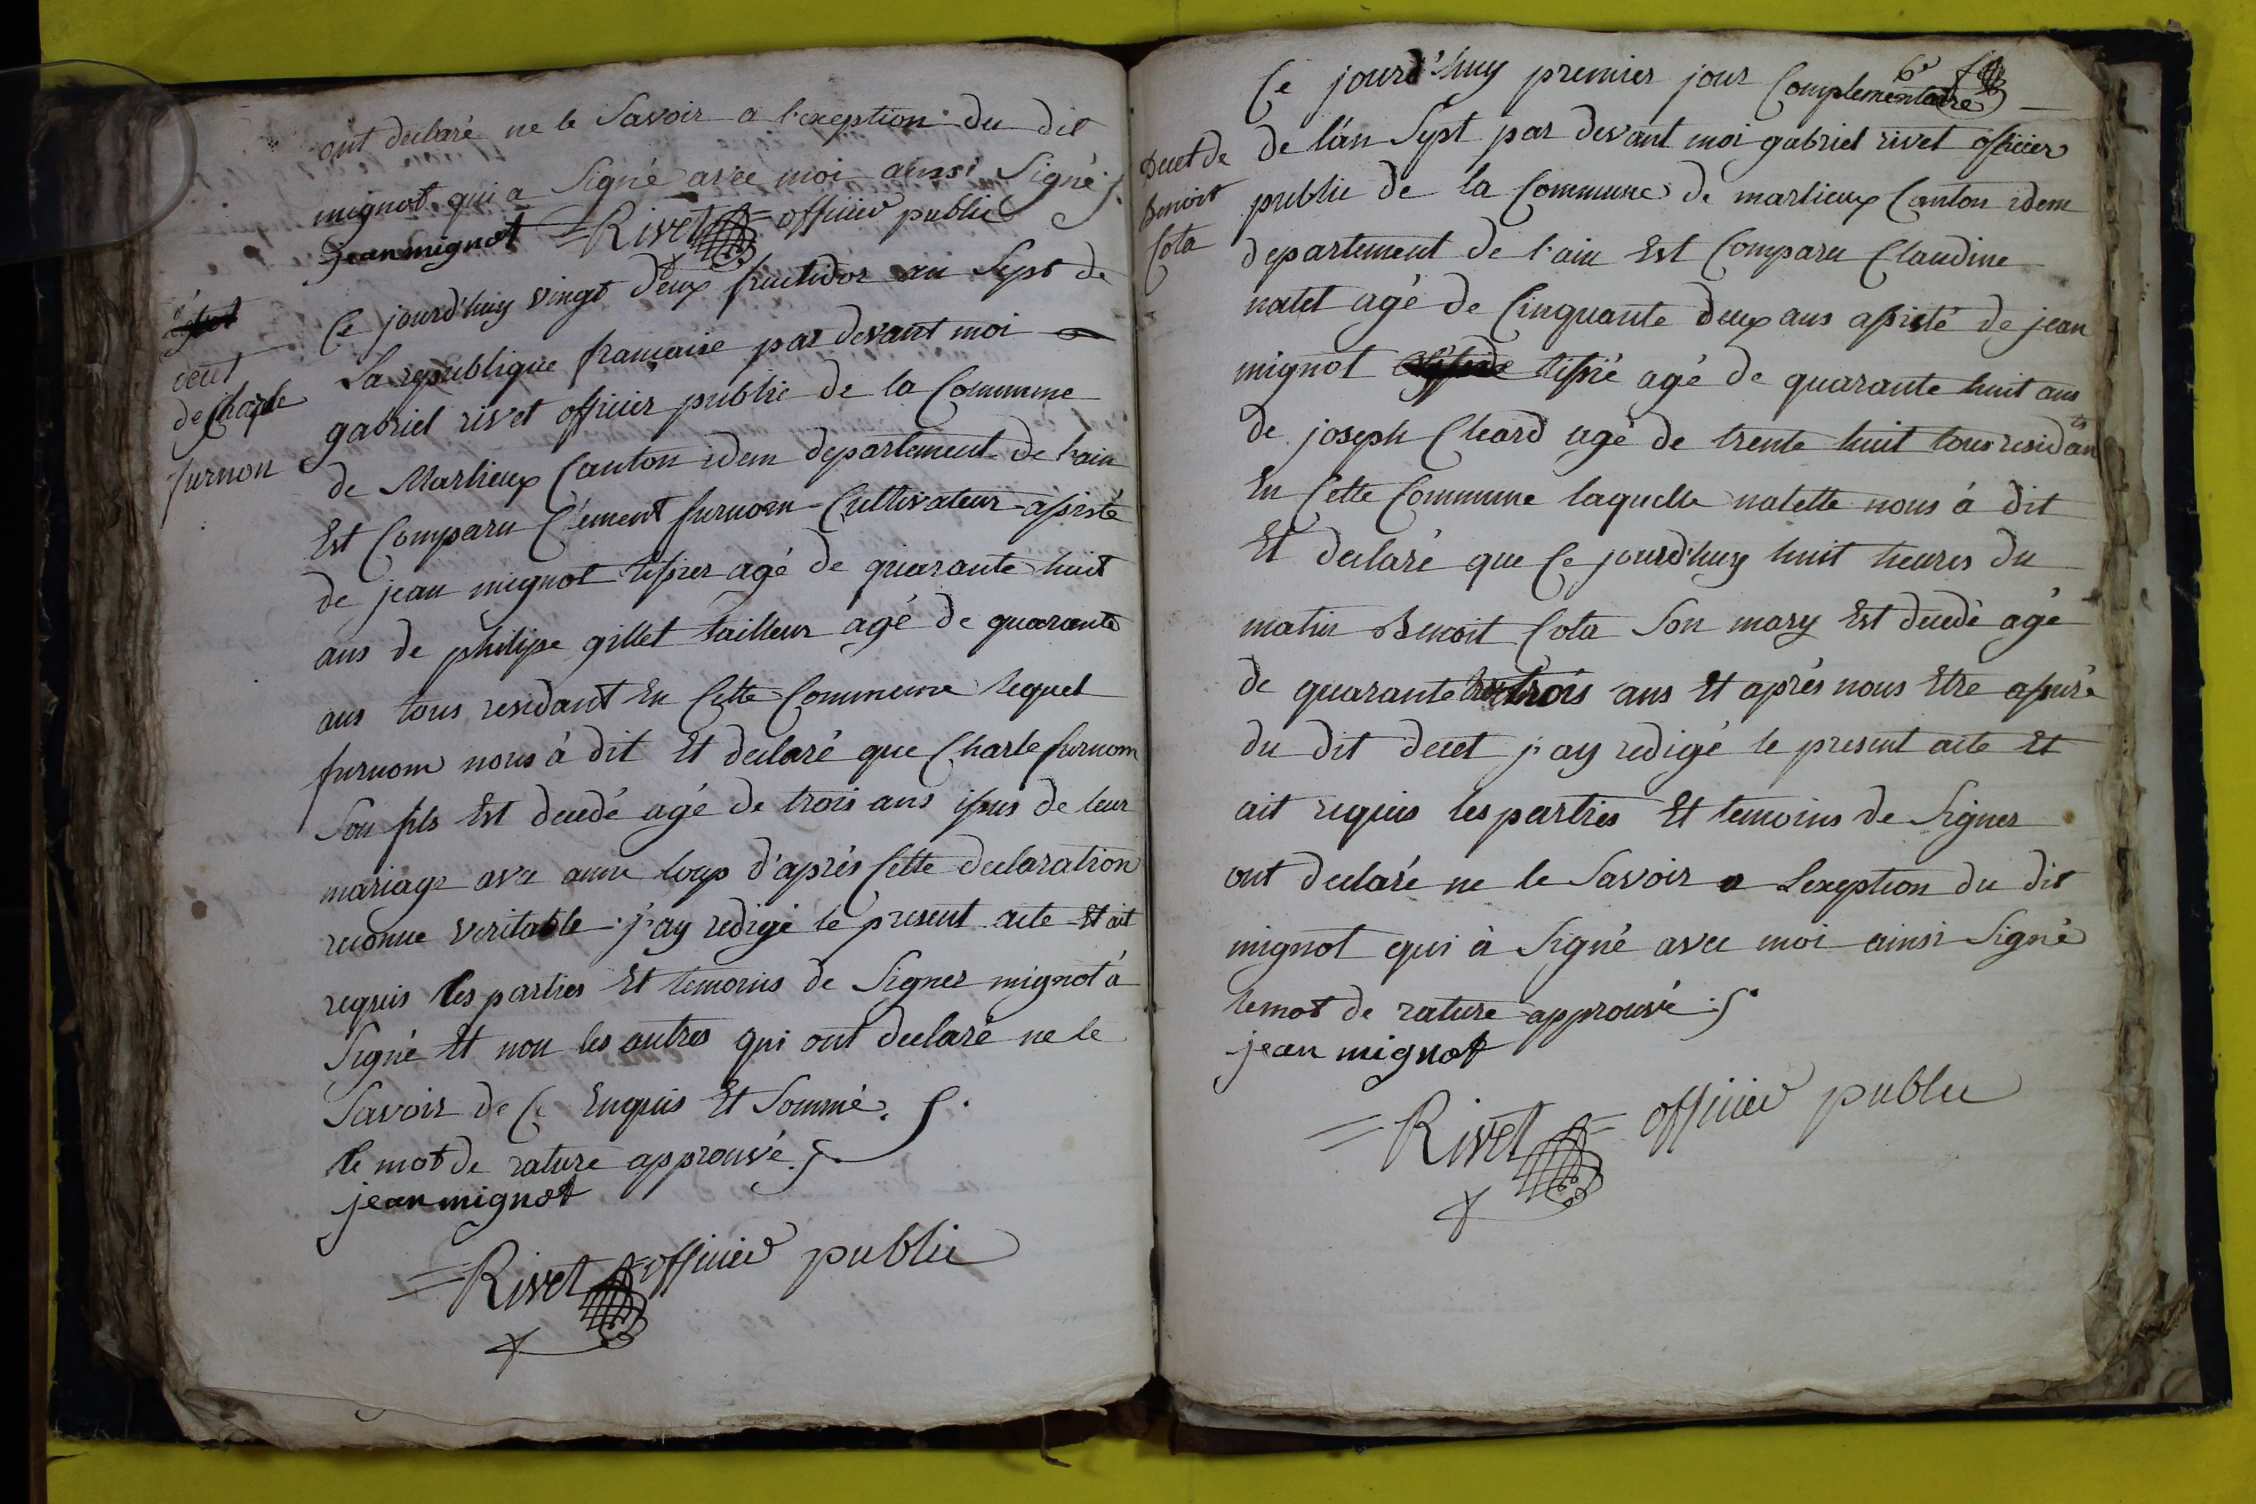 ont declaré ne le Savoir a l'exeption du dit
mignot qui a Signé avec moi ainsi Signé
jean mignot Rivet officier public
decet
de Charle
furnon
Ce jourd'huy vingt deux fructidor an Sept de
La republique francaise par devant moi
gabriel rivet officier public de la Commune
de Marlieux Canton idem departement de l'ain
Est Comparu Clément furnom Cultivateur assisté
de jean mignot tissier agé de quarante huit
ans de philipe gillet tailleur agé de quarante
ans tous residant En Cette Commune lequel
furnom nous à dit Et declaré que Charle furnom
Son fils Est decedé agé de trois ans issus de leur
mariage avec anne loup d'après Cette declaration
reconue veritable j'ay redigé le present acte Et ait
requis les parties Et temoins de Signer mignot à
Signé Et non les autres qui ont declaré ne le
Savoir de Ce Enquis Et Sommé.
le mot de rature approuvé
jean mignot
Rivet officier public
6e
Decet de
Benoit
Cota
Ce jourd'huy premier jour Complementaire
de l'an Sept par devant moi gabriel rivet officier
public de la Commune de marlieux Canton idem
departement de l'ain Est Comparu Claudine
natet agé de Cinquante deux ans assisté de jean
mignot tissié agé de quarante huit ans
de joseph Cleard agé de trente huit tous residants
En Cette Commune laquelle natette nous à dit
Et declaré que Ce jourd'huy huit heures du
matin Benoit Cota Son mary Est decedé agé
de quarante trois ans Et après nous Etre assuré
du dit decet j'ay redigé le present acte Et
ait requis les parties Et temoins de Signer
ont declaré ne le Savoir a Lexeption du dit
mignot qui à Signé avec moi ainsi Signé
le mot de rature approuvé
jean mignot
Rivet officier public